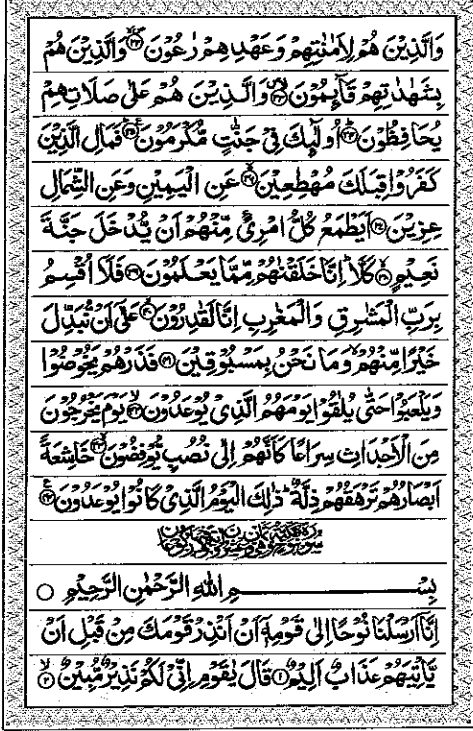 وَالَّذِيْنَ هُمْ لِاَمٰنٰتِهِمْ وَعَهْدِهِمْ رٰعُوْنَ ۝۳۲ وَالَّذِيْنَ هُمْ
بِشَهٰدٰتِهِمْ قَآىِٕمُوْنَ ۝۳۳ وَالَّذِيْنَ هُمْ عَلٰى صَلَاتِهِمْ
يُحَافِظُوْنَ ۝۳۴ اُولٰٓىِٕكَ فِيْ جَنّٰتٍ مُّكْرَمُوْنَ ۝۳۵ فَمَالِ الَّذِيْنَ
كَفَرُوْا قِبَلَكَ مُهْطِعِيْنَ ۝۳۶ عَنِ الْيَمِيْنِ وَعَنِ الشِّمَالِ
عِزِيْنَ ۝۳۷ اَيَطْمَعُ كُلُّ امْرِئٍ مِّنْهُمْ اَنْ يُّدْخَلَ جَنَّةَ
نَعِيْمٍ ۝۳۸ كَلَّا اِنَّا خَلَقْنٰهُمْ مِّمَّا يَعْلَمُوْنَ ۝۳۹ فَلَا اُقْسِمُ
بِرَبِّ الْمَشٰرِقِ وَالْمَغٰرِبِ اِنَّا لَقٰدِرُوْنَ ۝۴۰ عَلٰى اَنْ نُّبَدِّلَ
خَيْرًا مِّنْهُمْ وَمَا نَحْنُ بِمَسْبُوْقِيْنَ ۝۴۱ فَذَرْهُمْ يَخُوْضُوْا
وَيَلْعَبُوْا حَتّٰى يُلٰقُوْا يَوْمَهُمُ الَّذِيْ يُوْعَدُوْنَ ۝۴۲ يَوْمَ يَخْرُجُوْنَ
مِنَ الْاَجْدَاثِ سِرَاعًا كَاَنَّهُمْ اِلٰى نُصُبٍ يُّوْفِضُوْنَ ۝۴۳ خَاشِعَةً
اَبْصَارُهُمْ تَرْهَقُهُمْ ذِلَّةٌ ذٰلِكَ الْيَوْمُ الَّذِيْ كَانُوْا يُوْعَدُوْنَ ۝۴۴
بِسْمِ اللّٰهِ الرَّحْمٰنِ الرَّحِيْمِ
اِنَّا اَرْسَلْنَا نُوْحًا اِلٰى قَوْمِهٖ اَنْ اَنْذِرْ قَوْمَكَ مِنْ قَبْلِ اَنْ
يَّاْتِيَهُمْ عَذَابٌ اَلِيْمٌ ۝۱ قَالَ يٰقَوْمِ اِنِّيْ لَكُمْ نَذِيْرٌ مُّبِيْنٌ ۝۲